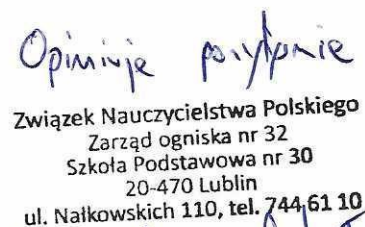 Opiniuje pozytywnie
Związek Nauczycielstwa Polskiego
Zarząd ogniska nr 32
Szkoła Podstawowa nr 30
20-470 Lublin
ul. Nałkowskich 110, tel. 744 61 10